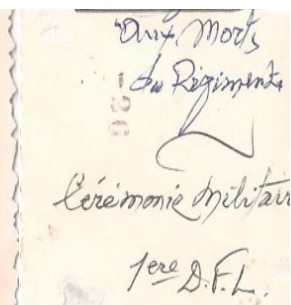 "Aux Morts
du Régiment
- 36
Cérémonie Militair
1ere D.F.L.